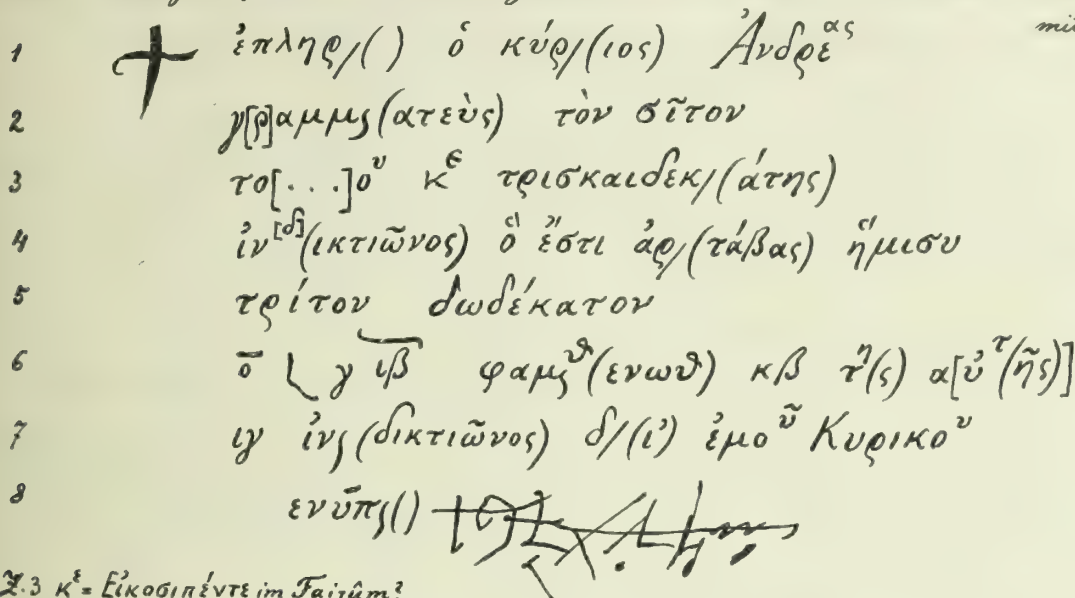 mit
1 ἐπληρ/() ὁ κύρ/(ιος) Ἀνδρεας
2 γ[ρ]αμμς(ατεὺς) τὸν σῖτον
3 το[...]ου κε τρισκαιδεκ/(άτης)
4 ἰν[δ](ικτιῶνος) ὅ ἔστι ἀρ/(τάβας) ἥμισυ
5 τρίτον δωδέκατον
6 ο γ ιβ φαμςθ(ενωθ) κβ τη(ς) α[ὐτ(ῆς)]
7 ιγ ἰνς(δικτιῶνος) δ/(ι') ἐμοῦ Κυρικου
8 ενυπς()
Z.3 κε = Εἰκοσιπέντε im Faijûm?